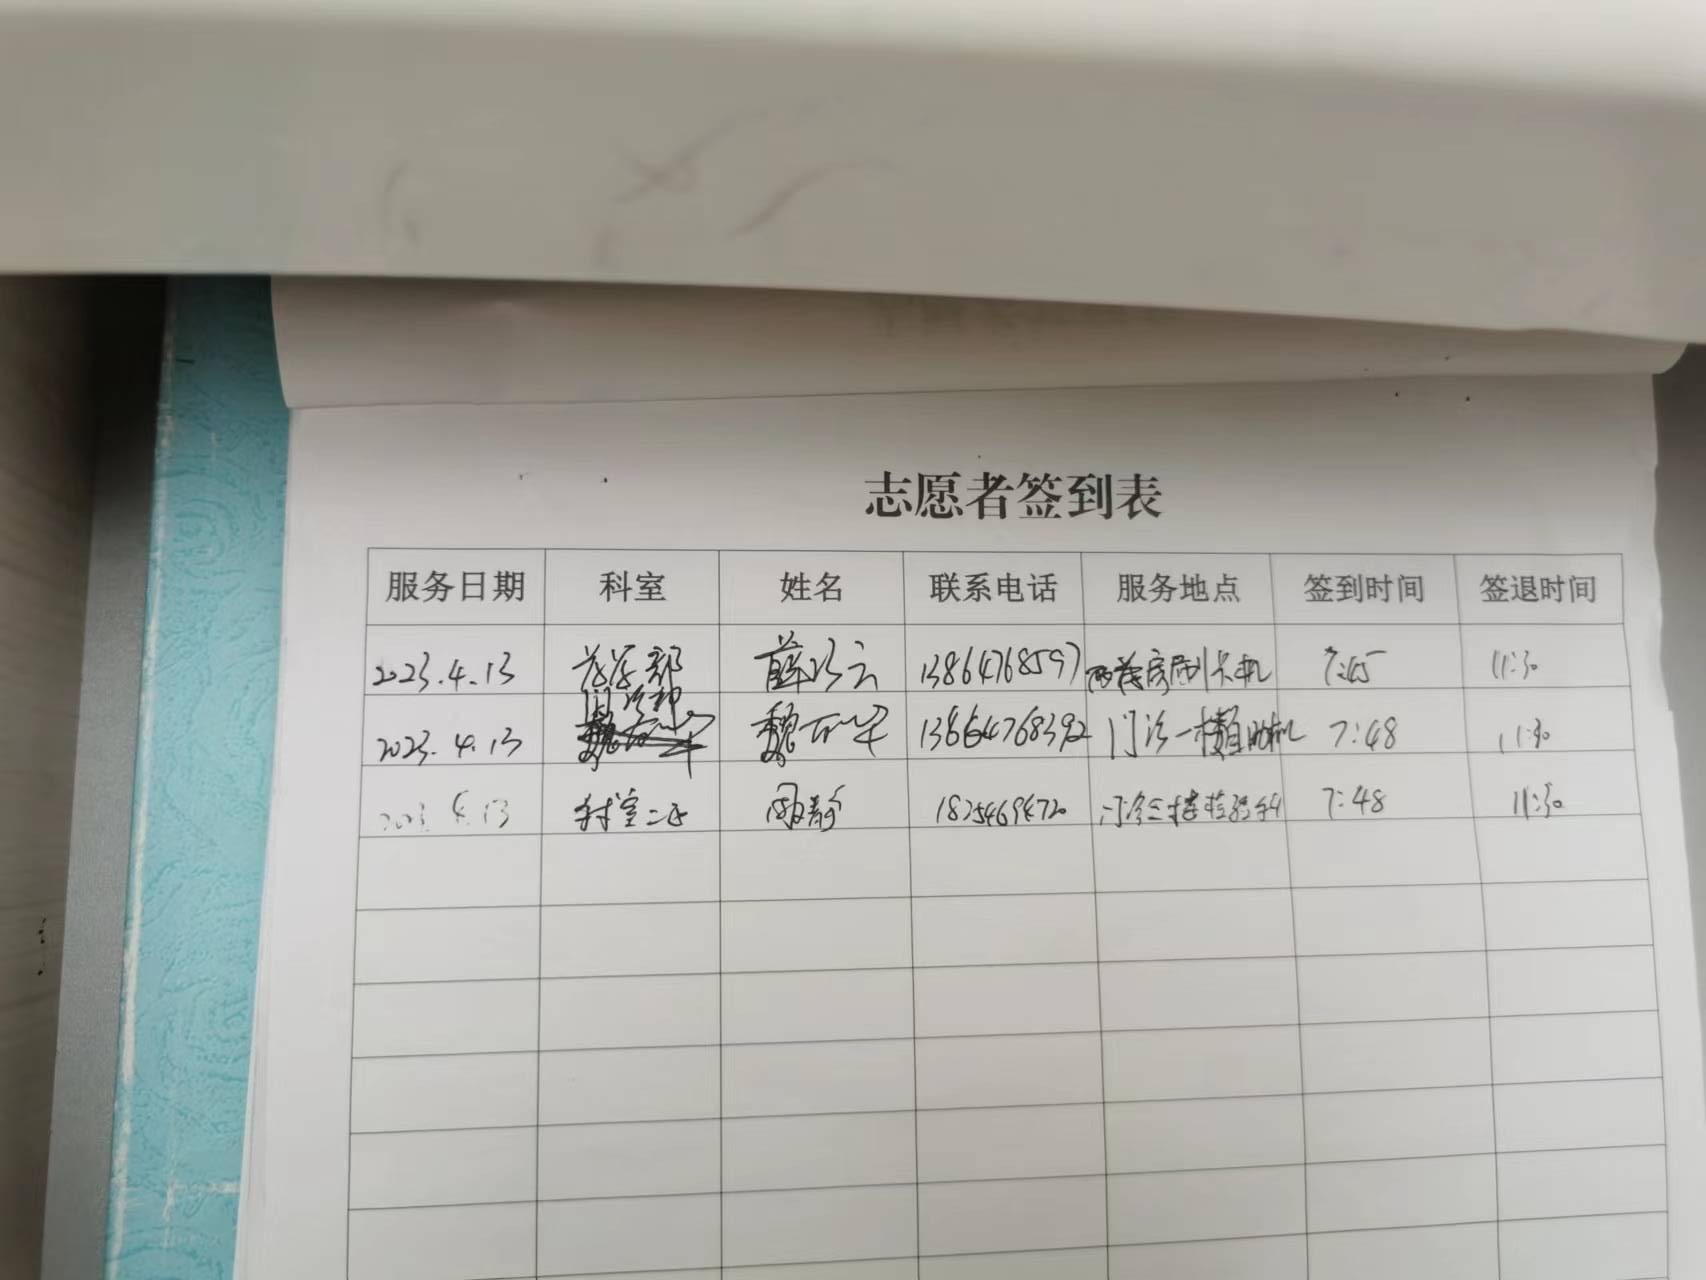 志愿者签到表
服务日期 科室 姓名 联系电话 服务地点 签到时间 签退时间
2023.4.13 药学部 薛 云 13864768597 西药房刷卡机 7:45 11:30
2023.4.13 门诊部 魏 华 13864768392 门诊一楼自助机 7:48 11:30
2023.4.13 二区 周静 18254694720 门诊三楼检验科 7:48 11:30